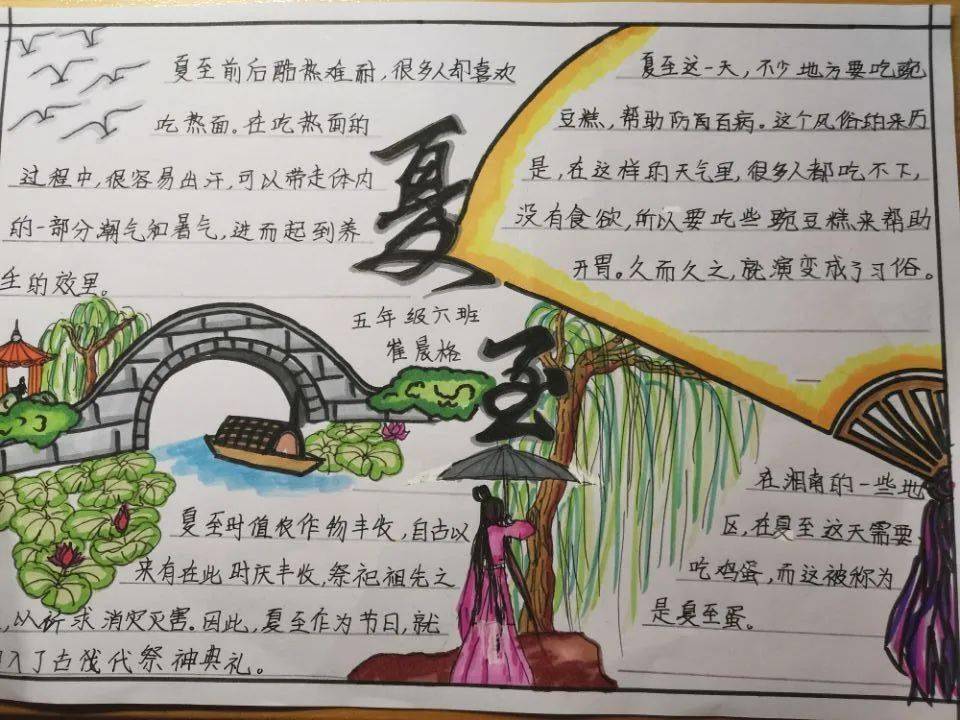 夏至前后酷热难耐,很多人却喜欢
吃热面。在吃热面的
过程中,很容易出汗,可以带走体内
的一部分潮气和暑气,进而起到养
生的效果。
夏至
五年级六班
崔晨格
夏至这一天,不少地方要吃豌
豆糕,帮助防育百病。这个风俗的来历
是,在这样的天气里,很多人都吃不下,
没有食欲,所以要吃些豌豆糕来帮助
开胃。久而久之,就演变成了习俗。
夏至时值农作物丰收,自古以
来有在此时庆丰收,祭祀祖先之
,以祈求消灾灾害。因此,夏至作为节日,就
入了古代祭神典礼。
在湘南的一些地
区,在夏至这天需要
吃鸡蛋,而这被称为
是夏至蛋。